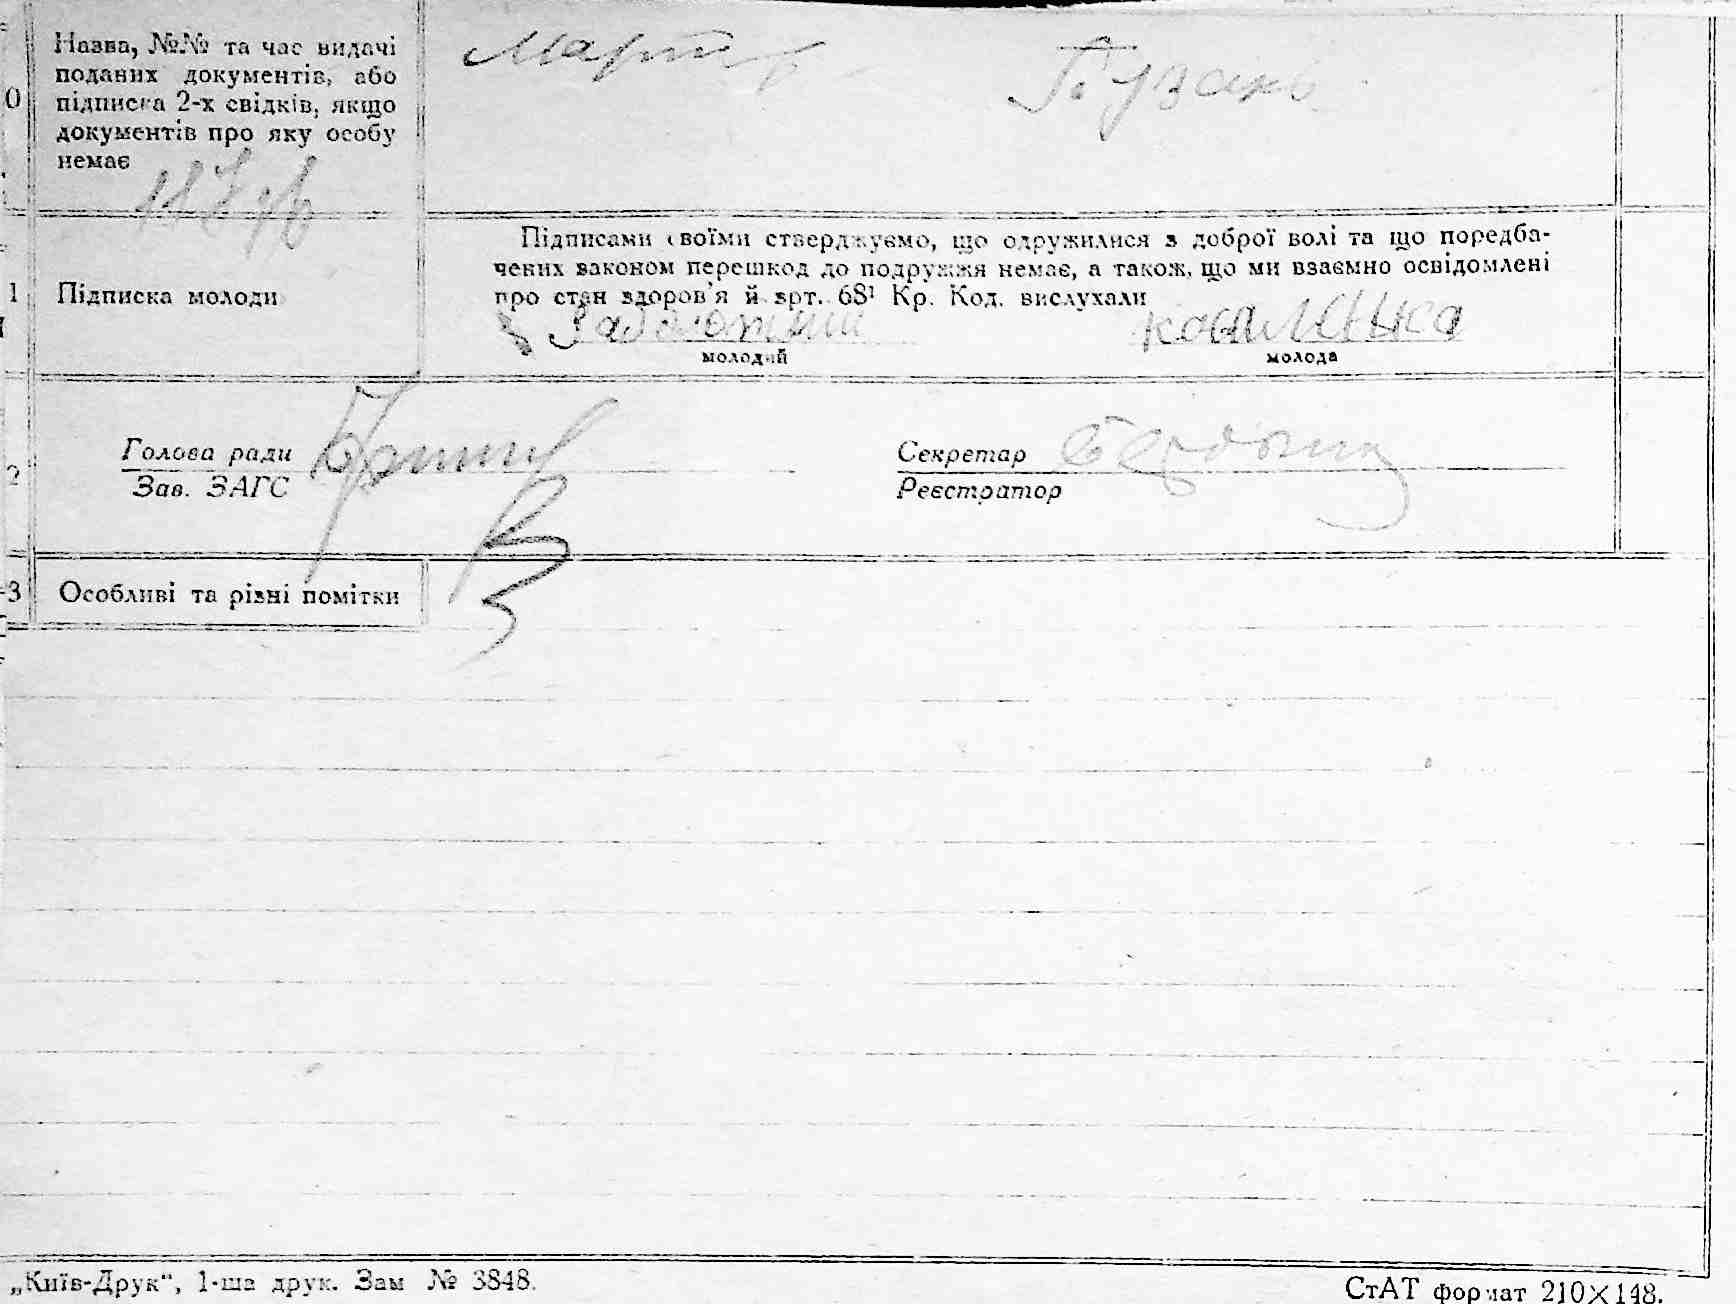 Назва, №№ та час видачі
поданих документів, або
підписка 2-х свідків, якщо
документів про яку особу
немає
0
Пузань
1
Підписка молоди
Підписами своїми стверджуємо, що одружилися з доброї волі та що поредба-
чених законом перешкод до подружжя немає, а також, що ми взаємно освідомлені
про стан здоров'я й арт. 68¹ Кр. Код. вислухали
молодий
молода
2
Голова ради
Зав. ЗАГС
Секретар
Реєстратор
3
Особливі та різні помітки
„Київ-Друк“, 1-ша друк. Зам № 3848.
СтАТ формат 210×148.